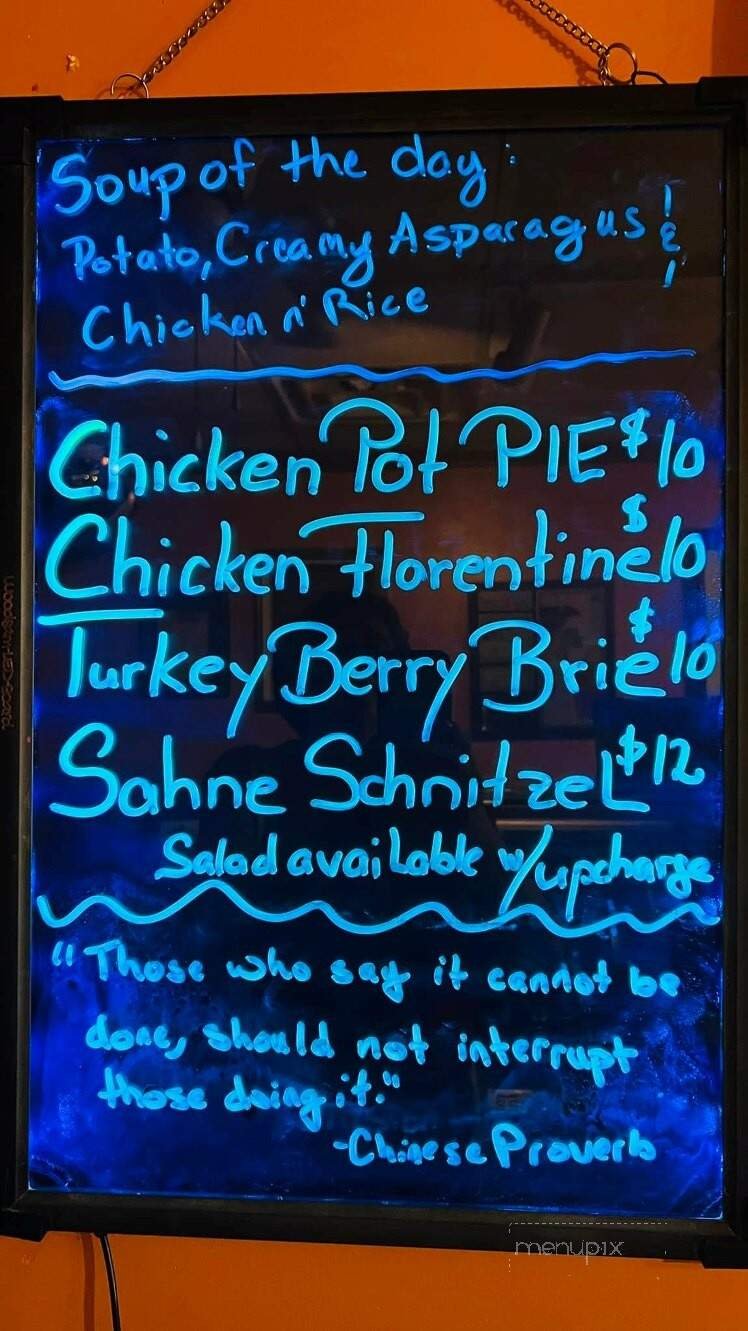 Soup of the day:
Potato, Creamy Asparagus &
Chicken n' Rice
Chicken Pot PIE $10
Chicken Florentine $10
Turkey Berry Brie $10
Sahne Schnitzel $12
Salad available w/upcharge
"Those who say it cannot be
done, should not interrupt
those doing it."
-Chinese Proverb
menupix